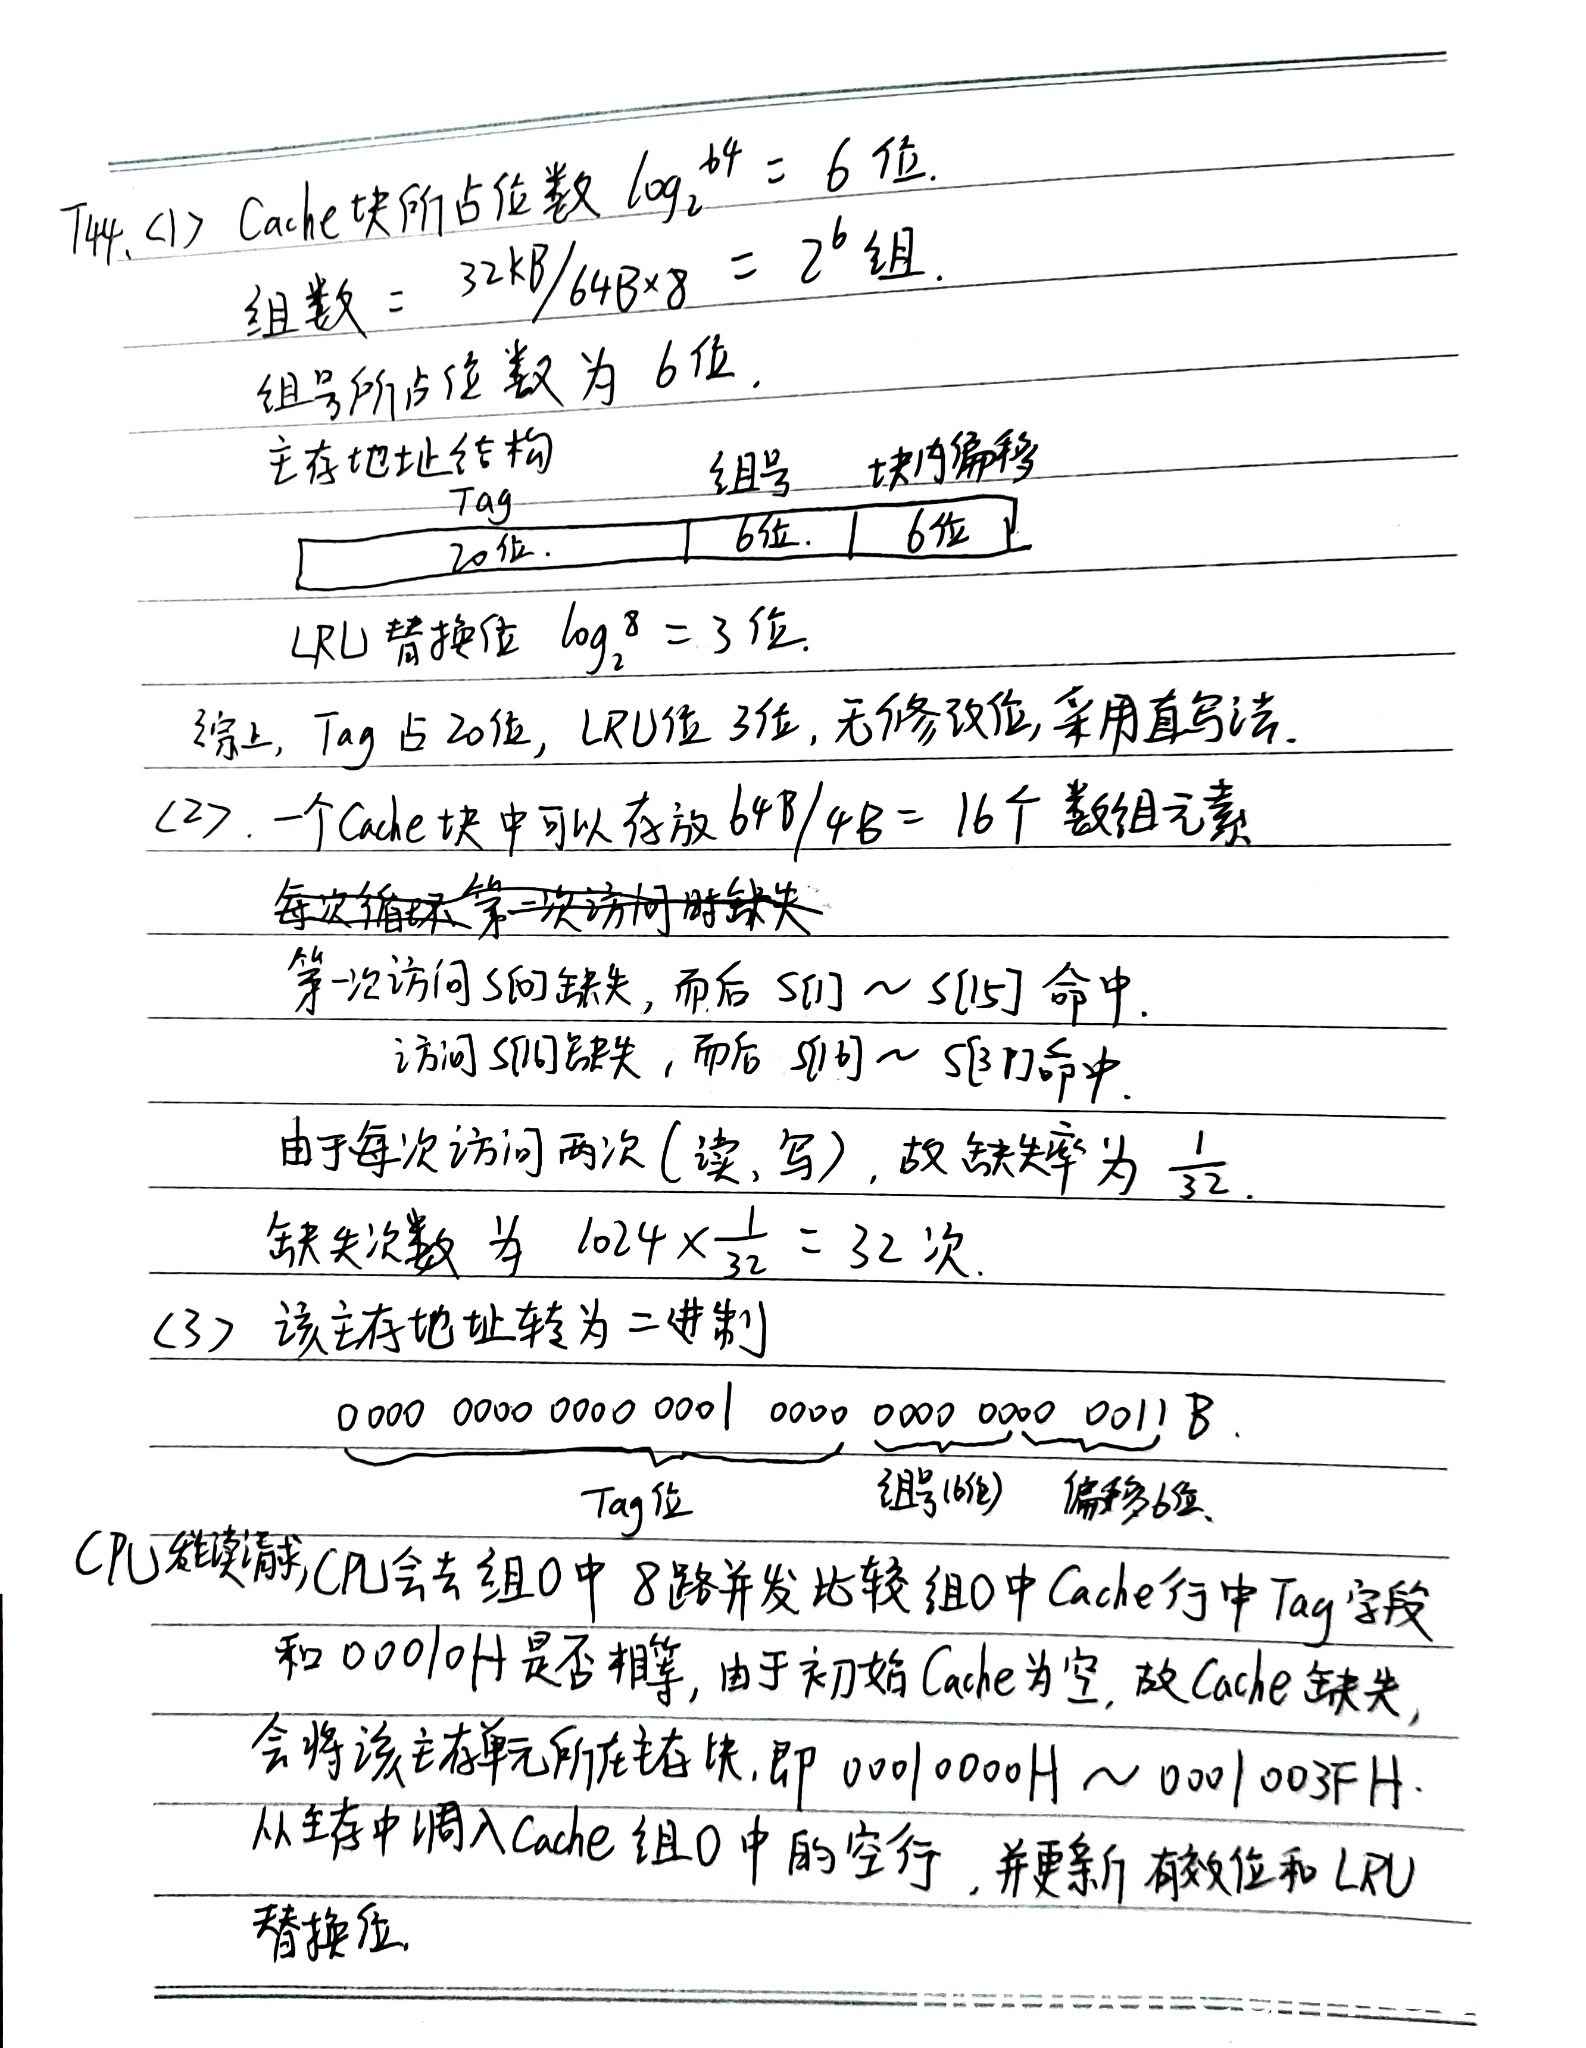 T44. <1> Cache块所占位数 log₂⁶⁴ = 6位.
组数 = 32kB/64B×8 = 2⁶组.
组号所占位数为 6位.
主存地址结构
Tag 组号 块内偏移
20位. 6位. 6位
LRU 替换位 log₂⁸ = 3位.
综上, Tag 占 20位, LRU位 3位, 无修改位, 采用直写法.
<2>. 一个Cache块中可以存放 64B/4B = 16个 数组元素
每次循环第一次访问时缺失
第一次访问 S[0]缺失, 而后 S[1] ~ S[15] 命中.
访问 S[16]缺失, 而后 S[16] ~ S[31]命中.
由于每次访问两次(读、写), 故缺失率为 1/32.
缺失次数 为 1024 × 1/32 = 32 次.
<3> 该主存地址转为二进制
0000 0000 0000 0001 0000 0000 0000 0011 B.
Tag位 组号(6位) 偏移6位.
CPU 读请求, CPU会去 组0中 8路并发比较 组0中Cache行中Tag字段
和 00010H 是否相等, 由于初始Cache为空, 故Cache缺失,
会将该主存单元所在主存块, 即 00010000H ~ 0001003FH.
从主存中调入Cache 组0中的空行, 并更新有效位和LRU
替换位.